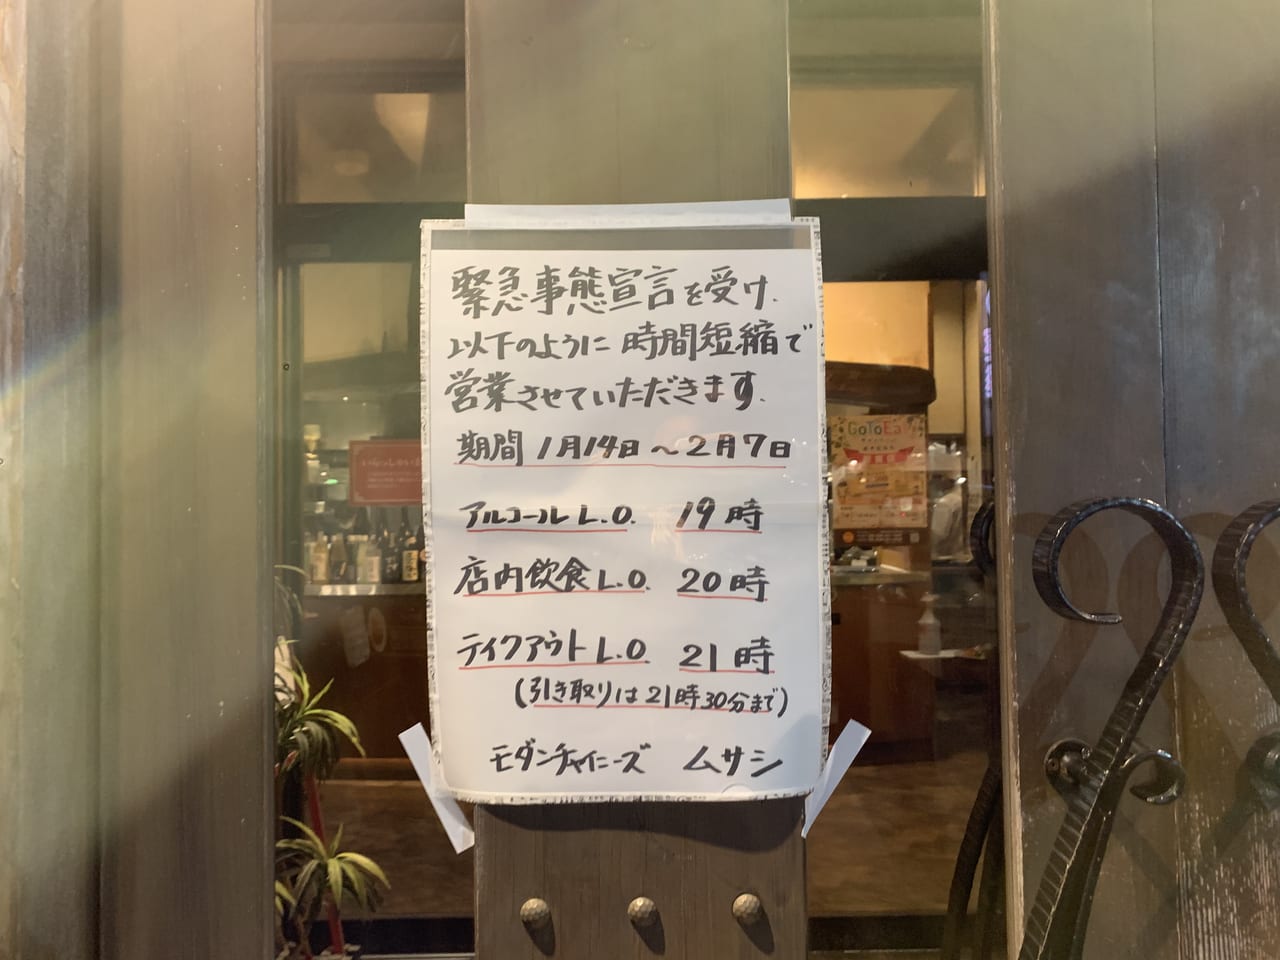 緊急事態宣言を受け、
以下のように時間短縮で
営業させていただきます。
期間 1月14日～2月7日
アルコールL.O. 19時
店内飲食L.O. 20時
テイクアウトL.O. 21時
(引き取りは21時30分まで)
モダンチャイニーズ ムサシ
GoToEa